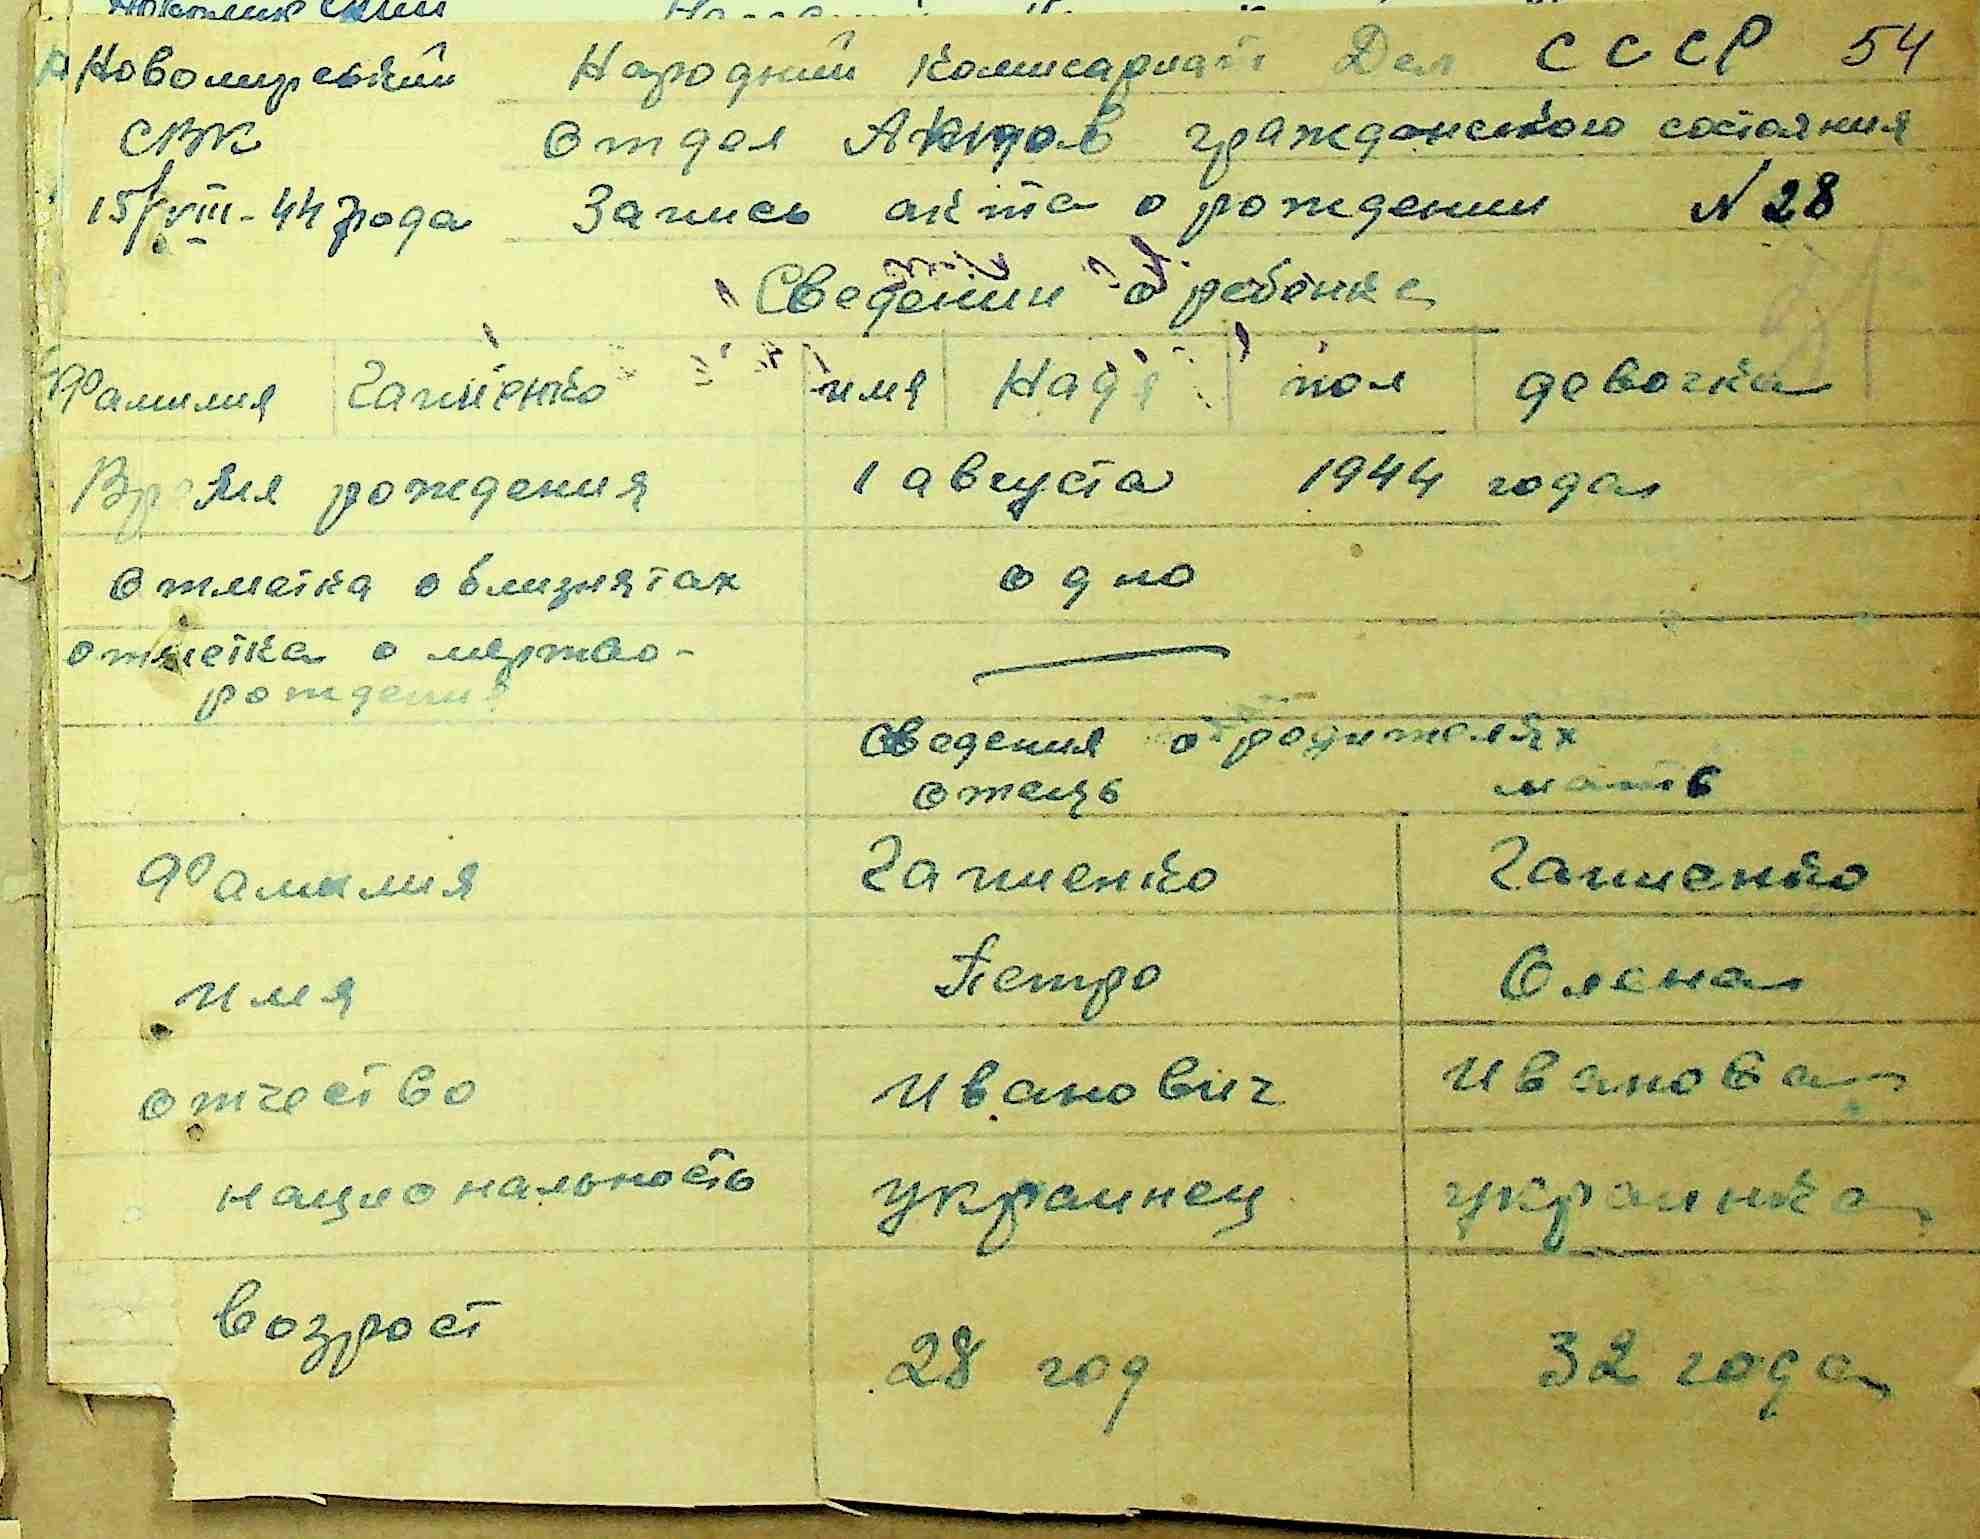 Новомирський Народний Комисариат Дел СССР 54
СВК Отдел Актов гражданского состояния
15/VIII-44 года Запись акта о рождении N 28
Сведении о ребенке
Фамилия Чапиенко имя Надя пол девочка
Время рождения 1 августа 1944 года
Отметка о близнятах одно
отметка о мертво-
рождения
Сведения о родителях
отець мать
Фамилия Чапиенко Чапиенко
имя Петро Олена
отчество Иванович Ивановна
национальность украинец украинка
возрост 28 год 32 года